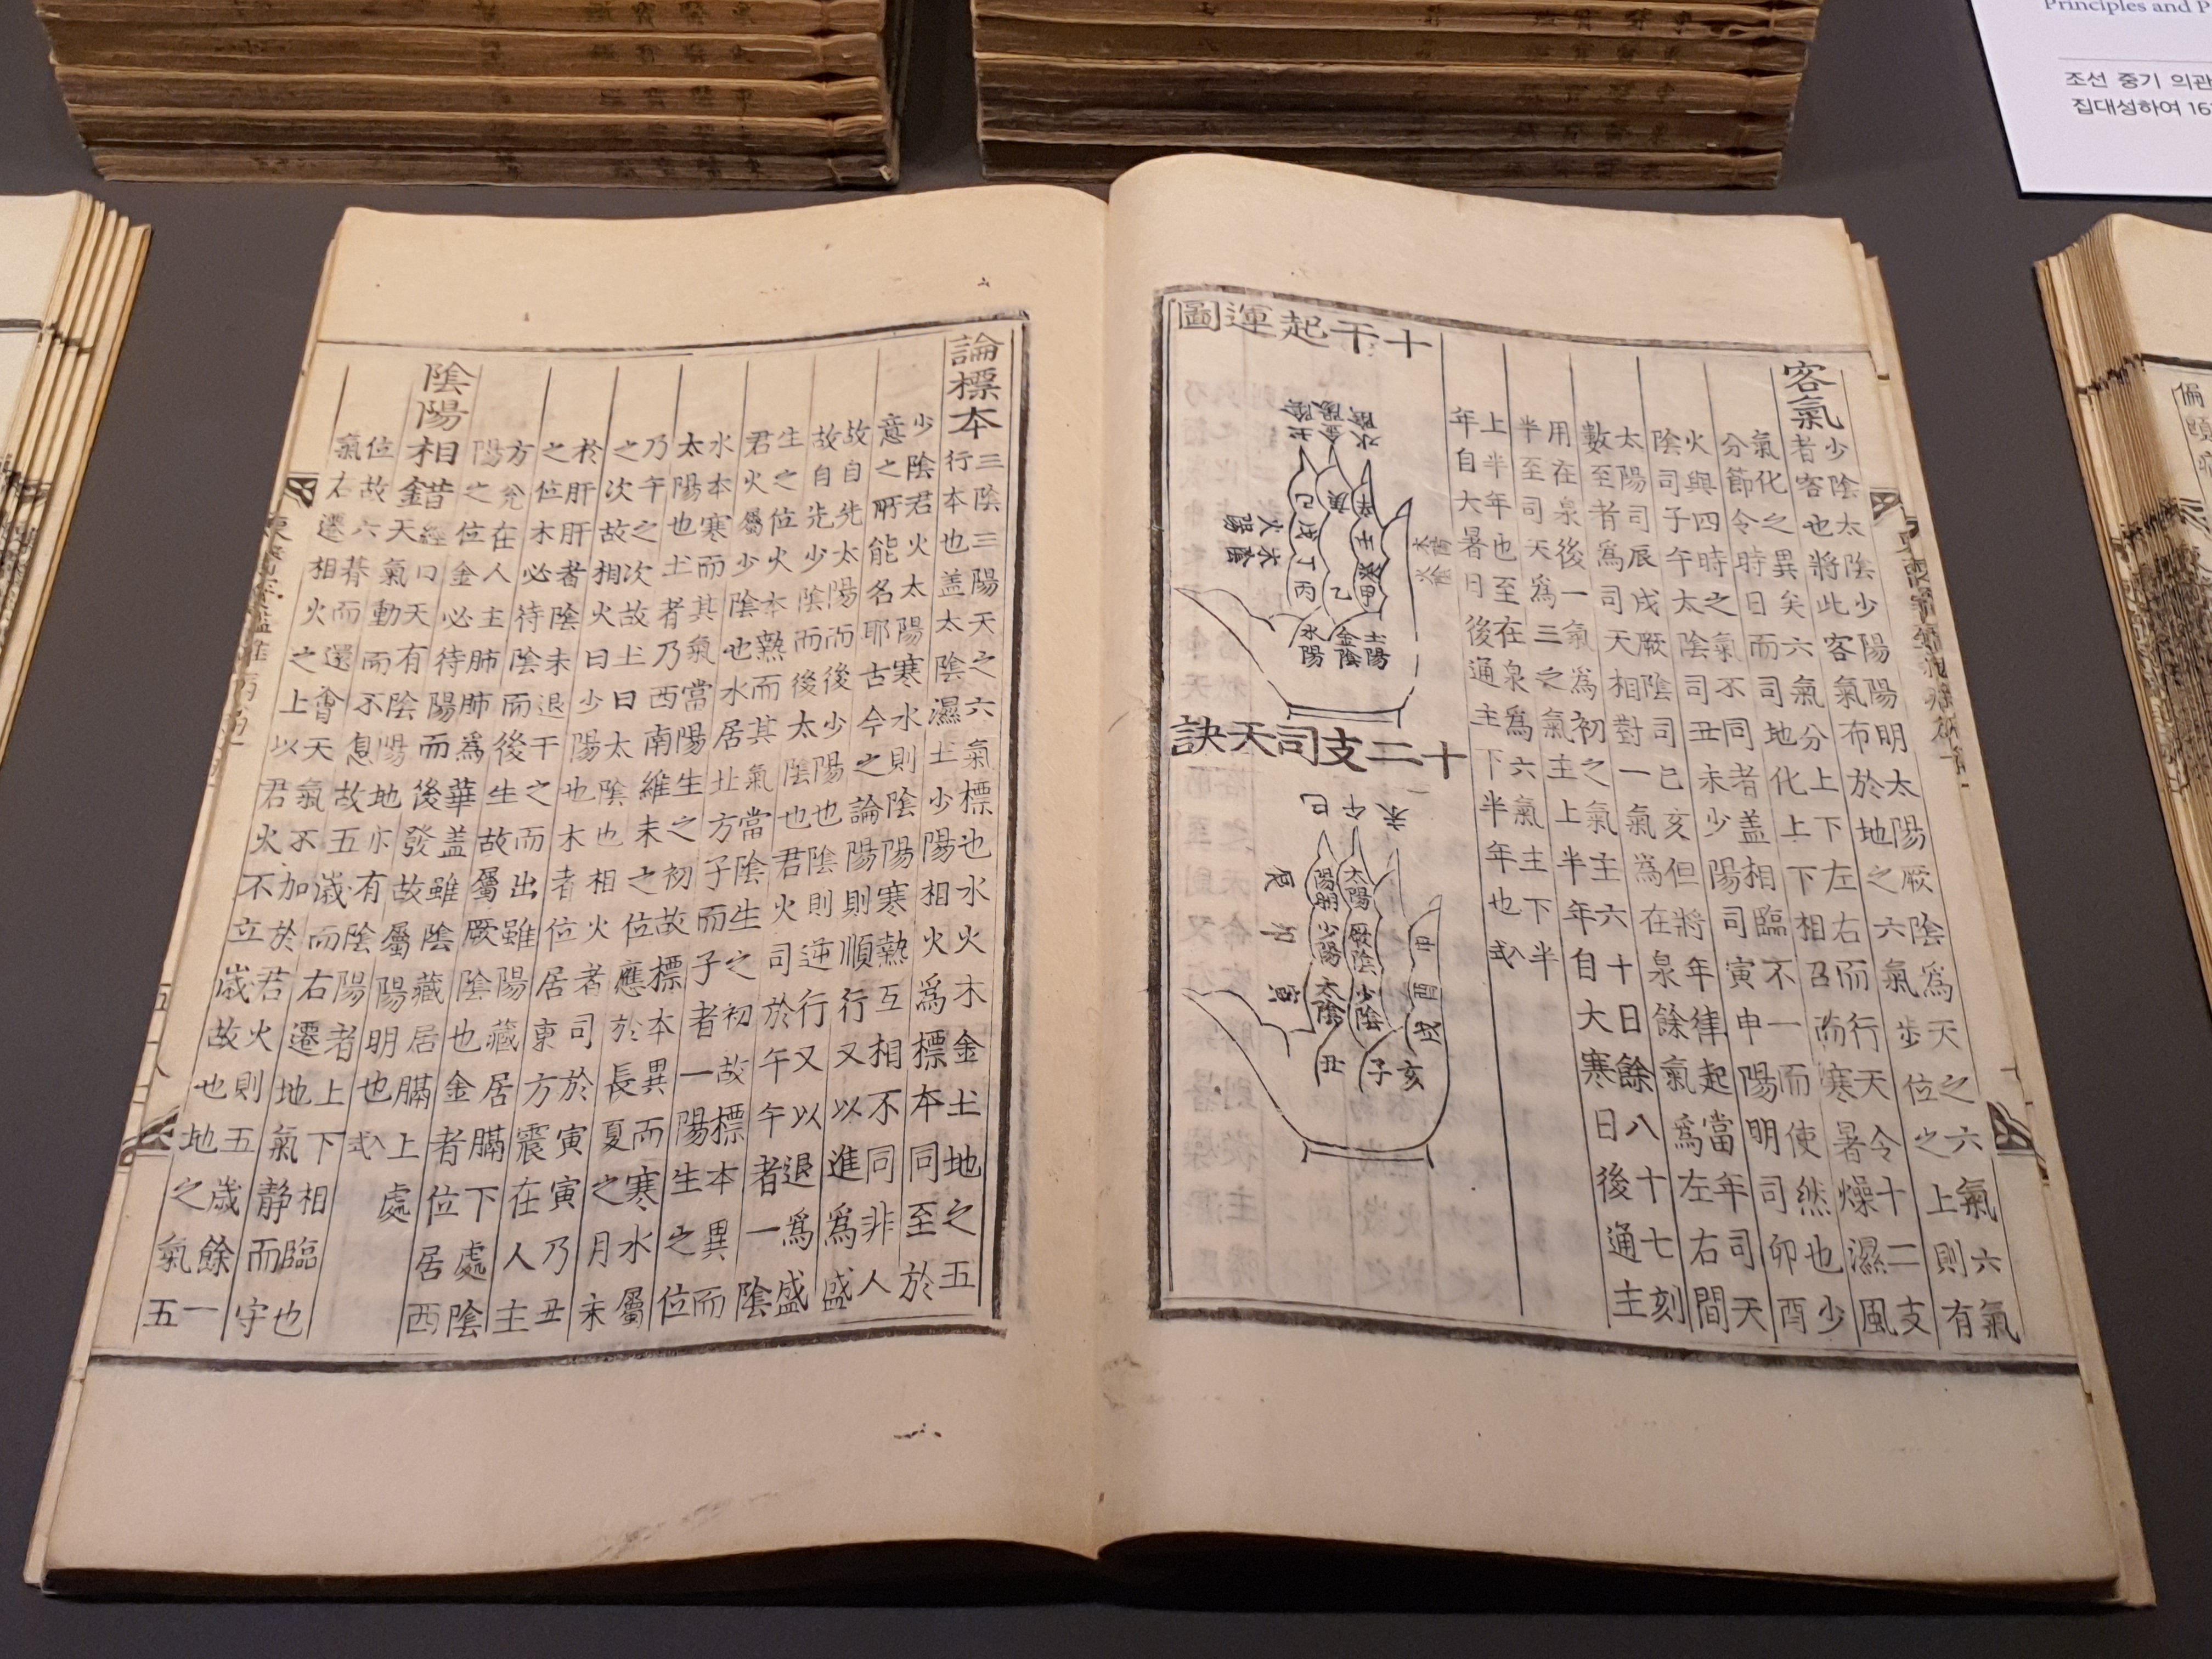 Principles and P
조선 중기 의관
집대성하여 16
客氣
少陰太陰少陽陽明太陽厥陰爲天之六氣六氣
者客也將此客氣布於地之六氣步位之上則有
氣化之異矣六氣分上下左右而行天令十二支
分節令時日而司地化上下相召而寒暑燥濕風
火與四時之氣不同者盖相臨不一而使然也少
陰司子午太陰司丑未少陽司寅申陽明司卯酉
太陽司辰戌厥陰司巳亥但將年律起當年司天
數至者爲司天相對一氣爲在泉餘氣爲左右間
用在泉後一氣爲初之氣主六十日餘八十七刻
半至司天爲三之氣主上半年自大寒日後通主
上半年也至在泉爲六氣主下半
年自大暑日後通主下半年也
十干起運圖
土陽
金陰
水陽
甲
乙
丙
丁
戊
己
庚
辛
壬
癸
十二支司天訣
巳
午
未
辰
卯
寅
丑
子
亥
戌
酉
申
陽明
太陽
少陽
厥陰
太陰
少陰
論標本
三陰三陽天之六氣標也水火木金土地之五
行本也盖太陰濕土少陽相火爲標本同至於
少陰君火太陽寒水則陰陽寒熱互相不同非人
意之所能名耶古今之論陽陽則順行又以進爲盛
故自先太陽而後少陽也陰則逆行又以退爲盛
故自先少陰而後太陰也君火司於午午者一陰
生之位火本熱而其氣當陰生之初故標本異而
君火屬少陰也水居北方子而子者一陽生之位
水本寒而其氣當陽生之初故標本異而寒水屬
太陽也土者乃西南維未之位應於長夏之月未
乃午之次故土曰太陰也相火者司於寅寅乃丑
之次故相火曰少陽也木者位居東方震在人主
於肝肝者陰未退干之而出雖陽藏居膈下處陰
之位木必待陰而後生故屬厥陰也金者位居西
方兊在人主肺肺爲華盖雖陰藏居膈上處
陽之位金必待陽而後發故屬陽明也
陰陽相錯
經曰天有陰陽地亦有陰陽者上下相臨也
天氣動而不息故五歲而右遷地氣静而守
位故六朞而還會天氣不加於君火則五歲餘一
氣右遷相火之上以君火不立歲故也地之氣五